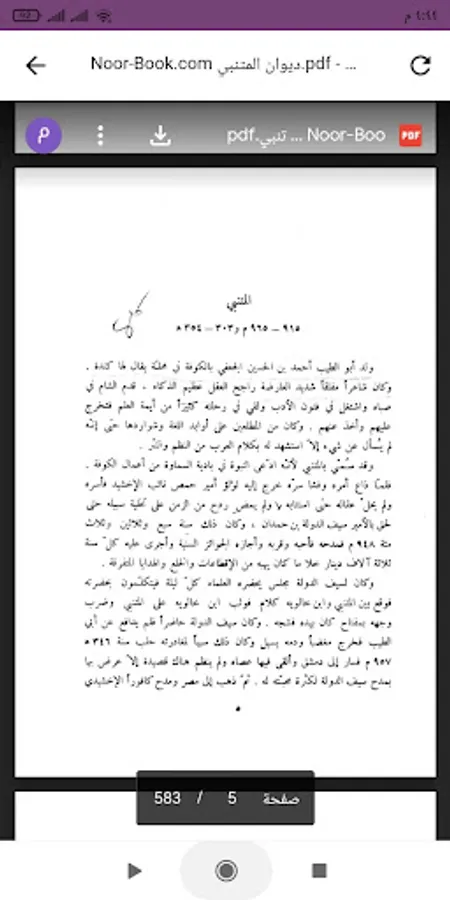 ٤:٤٤ م
Noor-Book.com ديوان المتنبي.pdf - ...
م
Noor-Boo ... تنبي.pdf
PDF
المتنبي
٩١٥ – ٩٦٥ م و ٣٠٣ – ٣٥٤ ه
ولد أبو الطيب أحمد بن الحسين الجعفي بالكوفة في محلة يقال لها كندة .
وكان شاعراً مفلقاً شديد العارضة راجح العقل عظيم الذكاء . قدم الشام في
صباه واشتغل في فنون الأدب ولقي في رحلته كثيراً من أيمة العلم فتخرج
عليهم وأخذ عنهم . وكان من المطلعين على أوابد اللغة وشواردها حتى إنّه
لم يُسأل عن شيء إلاّ استشهد له بكلام العرب من النظم والنثر .
وقد سُمّي بالمتنبي لأنّه ادّعى النبوة في بادية السماوة من أعمال الكوفة .
فلمّا ذاع أمره وفشا سرّه خرج إليه لؤلؤ أمير حمص نائب الإخشيد فأسره
ولم يحلّ عقاله حتى استتابه ولم يمض ردح من الزمن على تخلية سبيله حتى
لحق بالأمير سيف الدولة بن حمدان ، وكان ذلك سنة سبع وثلاثين وثلاث
مئة ٩٤٨ م فمدحه فأحبه وقربه وأجازه الجوائز السنيّة وأجرى عليه كلّ سنة
ثلاثة آلاف دينار خلا ما كان يهبه من الإقطاعات والخلع والهدايا المتفرقة .
وكان لسيف الدولة مجلس يحضره العلماء كلّ ليلة فيتكلّمون بحضرته
فوقع بين المتنبي وابن خالويه كلام فوثب ابن خالويه على المتنبي وضرب
وجهه بمفتاح كان بيده فشجه . وكان سيف الدولة حاضراً فلم يدافع عن أبي
الطيب فخرج مغضباً ودمه يسيل وكان ذلك سبباً لمغادرته حلب سنة ٣٤٦ ه
٩٥٧ م فسار إلى دمشق وألقى فيها عصاه ولم ينظم هناك قصيدة إلاّ عرض بها
بمدح سيف الدولة لكثرة محبّته له . ثمّ ذهب إلى مصر ومدح كافوراً الإخشيدي
٥
صفحة 5 / 583